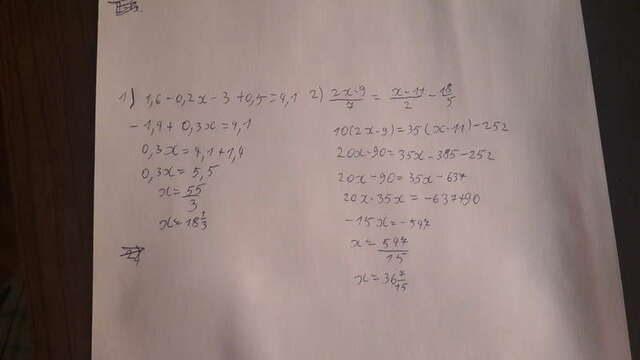 1) 1,6-0,2x-3+0,5=4,1
-1,4+0,3x=4,1
0,3x=4,1+1,4
0,3x=5,5
x=55/3
x=18 1/3
2) 2x-9/7 = x-11/2 - 18/5
10(2x-9)=35(x-11)-252
20x-90=35x-385-252
20x-90=35x-637
20x-35x=-637+90
-15x=-547
x=547/15
x=36 7/15